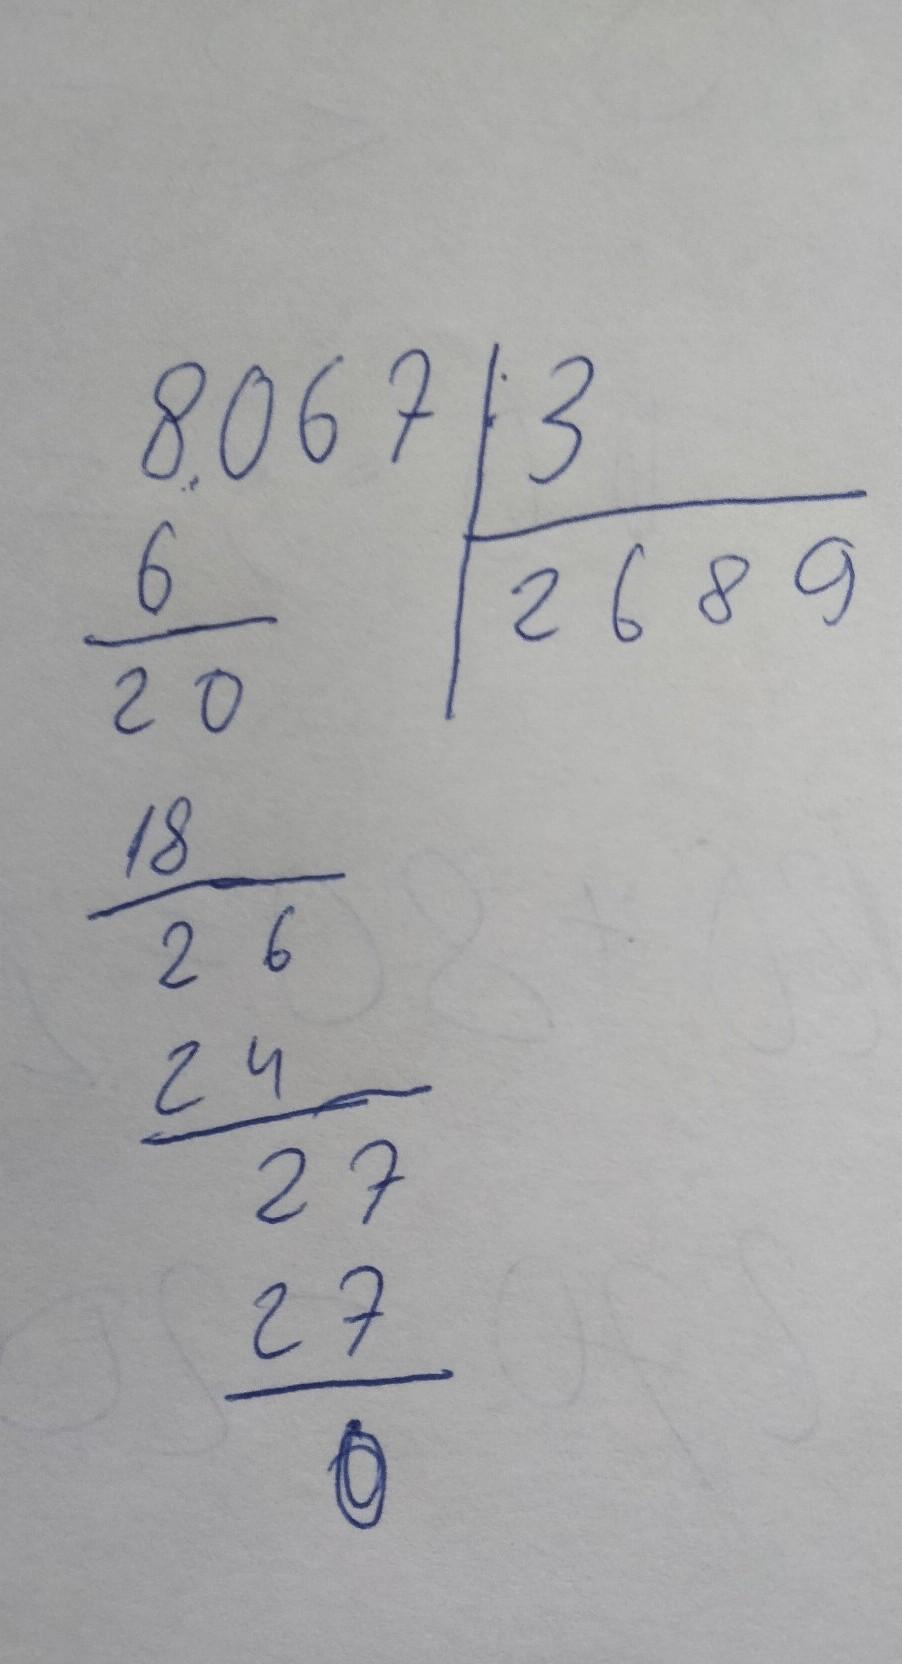 8067 3
6 2689
20
18
26
24
27
27
0